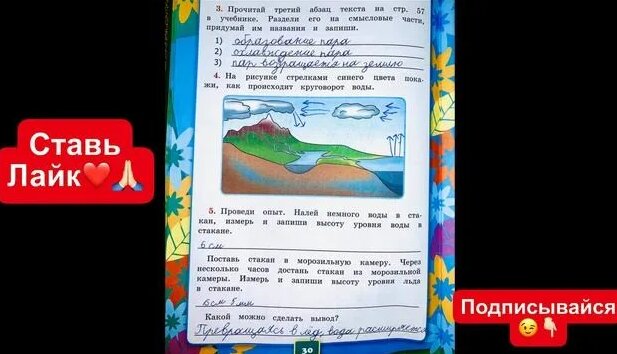 3. Прочитай третий абзац текста на стр. 57
в учебнике. Раздели его на смысловые части,
придумай им названия и запиши.
1) образование пара
2) охлаждение пара
3) пар возвращается на землю
4. На рисунке стрелками синего цвета пока-
жи, как происходит круговорот воды.
Ставь
Лайк❤️🙏🏻
5. Проведи опыт. Налей немного воды в ста-
кан, измерь и запиши высоту уровня воды в
стакане.
6 см
Поставь стакан в морозильную камеру. Через
несколько часов достань стакан из морозильной
камеры. Измерь и запиши высоту уровня льда
в стакане.
6 см 5 мм
Какой можно сделать вывод?
Превращаясь в лёд, вода расширяется
30
Подписывайся
😉👇🏻